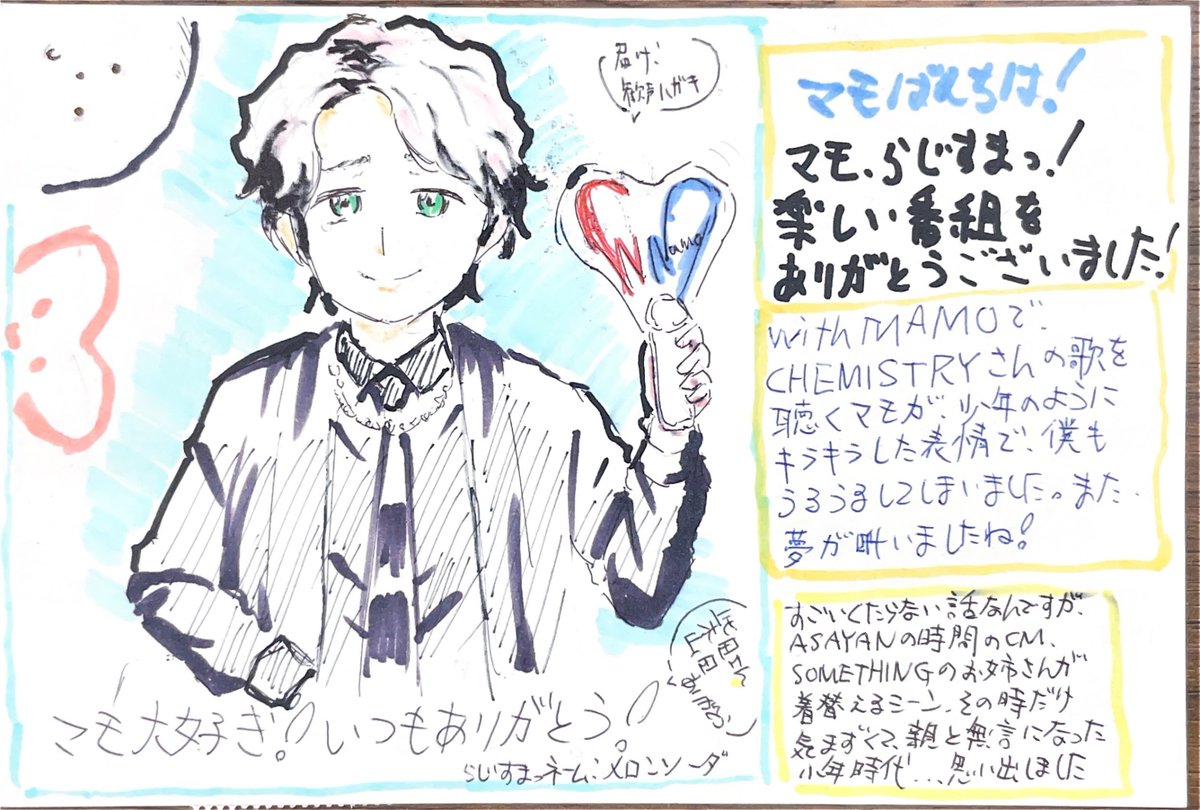 届け、
歓声ハガキ
W
Mamo
マモばんちは!
マモ、らじすまっ!
楽しい番組を
ありがとうございました!
with MAMOで、
CHEMISTRYさんの歌を
聴くマモが、少年のように
キラキラした表情で、僕も
うるうるしてしまいました。また、
夢が叶いましたね!
すごいくだらない話なんですが、
ASAYANの時間のCM、
SOMETHINGのお姉さんが
着替えるシーン、その時だけ
気まずくて、親と無言になった
少年時代…思い出しました
マモ大好き!いつもありがとう!
らじすまっネーム:メロンソーダ